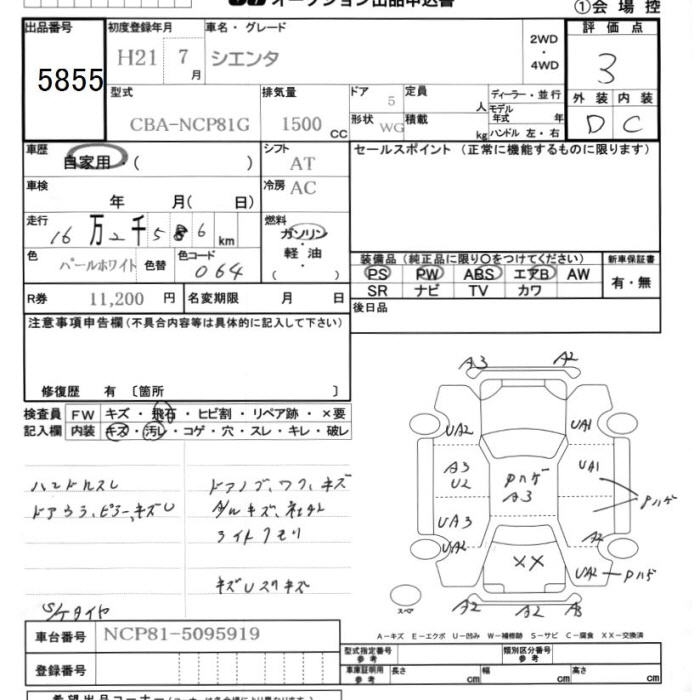 オークション出品申込書
①会場控
出品番号 初度登録年月 車名・グレード 評価点
5855 H21 7月 シエンタ 2WD ・ 4WD 3
型式 排気量 ドア 5 定員 人 ディーラー・並行 外装 内装
CBA-NCP81G 1500 CC 形状 WG 積載 kg モデル年式 年 ハンドル 左・右 D C
車歴 自家用・( ) シフト AT セールスポイント (正常に機能するものに限ります)
車検 年 月( 日) 冷房 AC
走行 16万2千5 6 km 燃料 ガソリン・軽油 ( )
色 パールホワイト 色替 色コード 064 装備品 (純正品に限り〇をつけてください) 新車保証書
PS PW ABS エアB AW 有・無
SR ナビ TV カワ
R券 11,200 円 名変期限 月 日 後日品
注意事項申告欄 (不具合内容等は具体的に記入して下さい)
修復歴 有 〔箇所 〕
検査員 FW キズ・飛石・ヒビ割・リペア跡・×要
記入欄 内装 キズ・汚レ・コゲ・穴・スレ・キレ・破レ
A3 A2
UA2 UA1
A3 U2 Pハゲ A3 UA1 Pハゲ
UA3
UA2 A2
XX UA2 Pハゲ
A2 A2 A3
スペア
ハンドルスレ ドアノブ、ワク、キズ
ドアウラ、ピラー、キズU
ライトクモリ
キズUスリキズ
S/Kタイヤ
車台番号 NCP81-5095919
登録番号
A－キズ E－エクボ U－凹み W－補修跡 S－サビ C－腐食 XX－交換済
型式指定番号 参考 類別区分番号 参考
車庫証明用 参考 長さ cm 幅 cm 高さ cm
希望出品コーナー